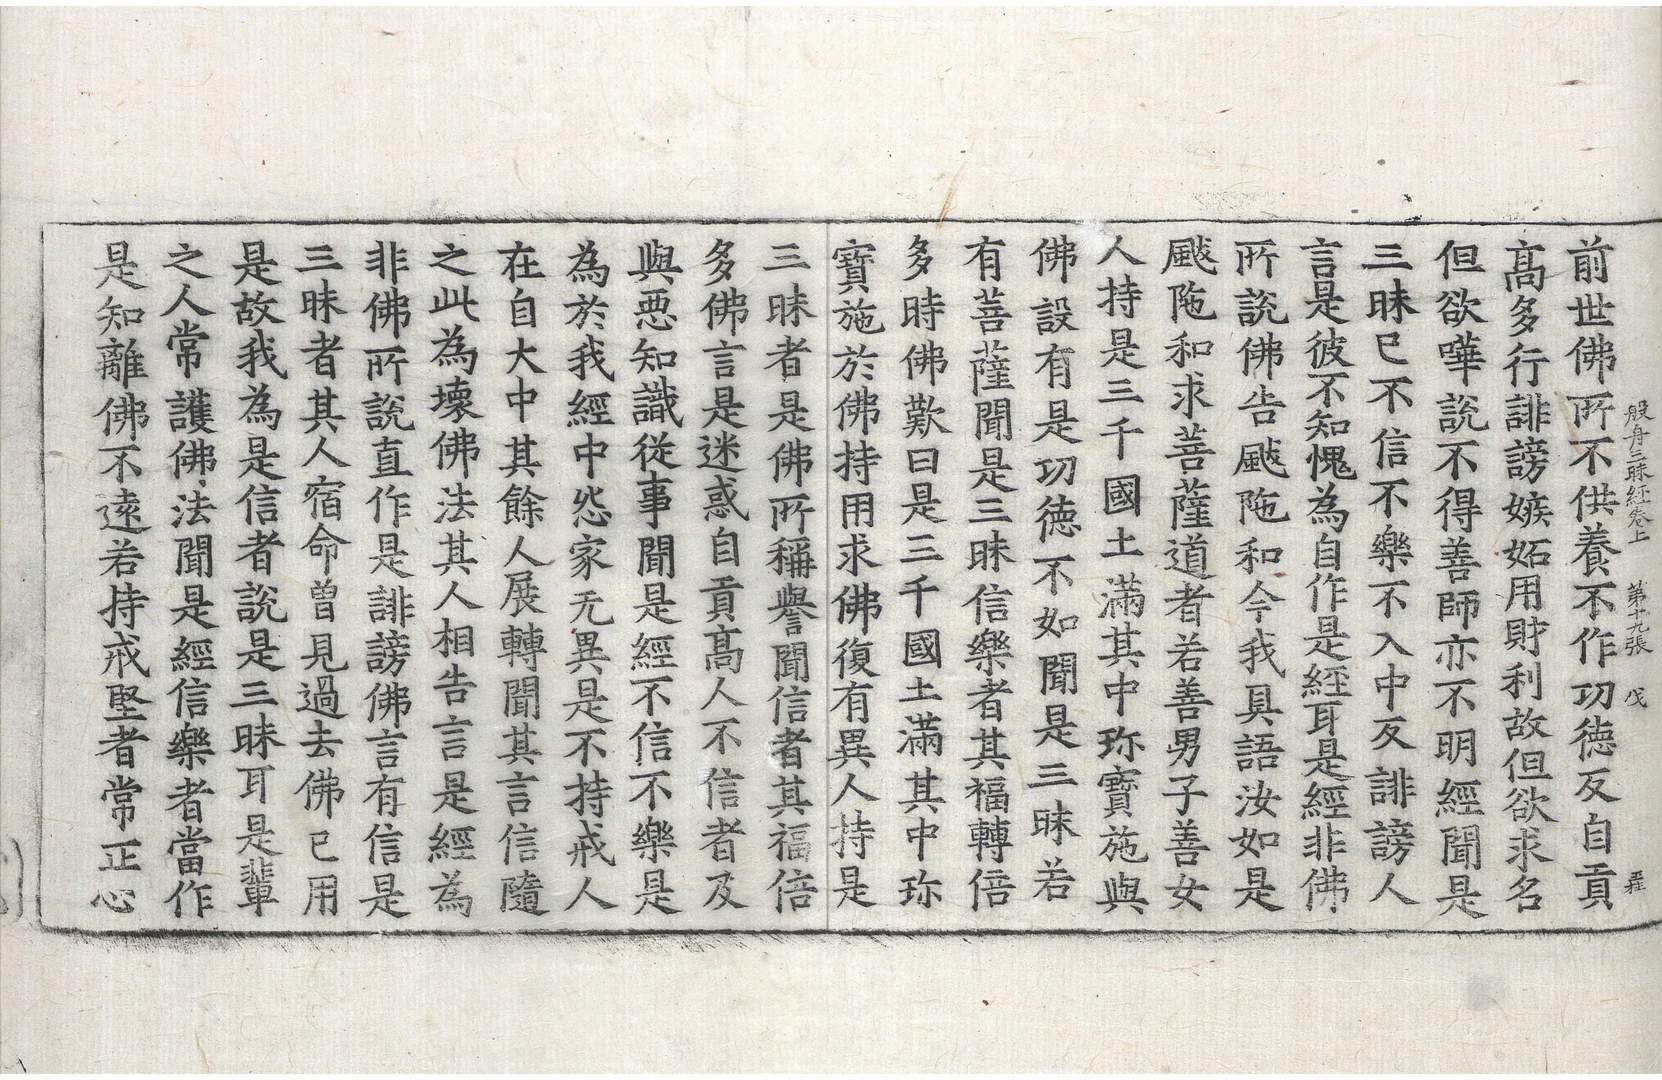 般舟三昧經卷上 第十九張 伐
前世佛所不供養不作功德反自貢
高多行誹謗嫉妬用財利故但欲求名
但欲嘩說不得善師亦不明經聞是
三昧已不信不樂不入中反誹謗人
言是彼不知愧為自作是經耳是經非佛
所說佛告颰陁和今我具語汝如是
颰陁和求菩薩道者若善男子善女
人持是三千國土滿其中珎寶施與
佛設有是功德不如聞是三昧若
有菩薩聞是三昧信樂者其福轉倍
多時佛歎曰是三千國土滿其中珎
寶施於佛持用求佛復有異人持是
三昧者是佛所稱譽聞信者其福倍
多佛言是迷惑自貢高人不信者及
與惡知識從事聞是經不信不樂是
為於我經中怨家无異是不持戒人
在自大中其餘人展轉聞其言信隨
之此為壞佛法其人相告言是經為
非佛所說直作是誹謗佛言有信是
三昧者其人宿命曾見過去佛已用
是故我為是信者說是三昧耳是輩
之人常護佛法聞是經信樂者當作
是知離佛不遠若持戒堅者常正心